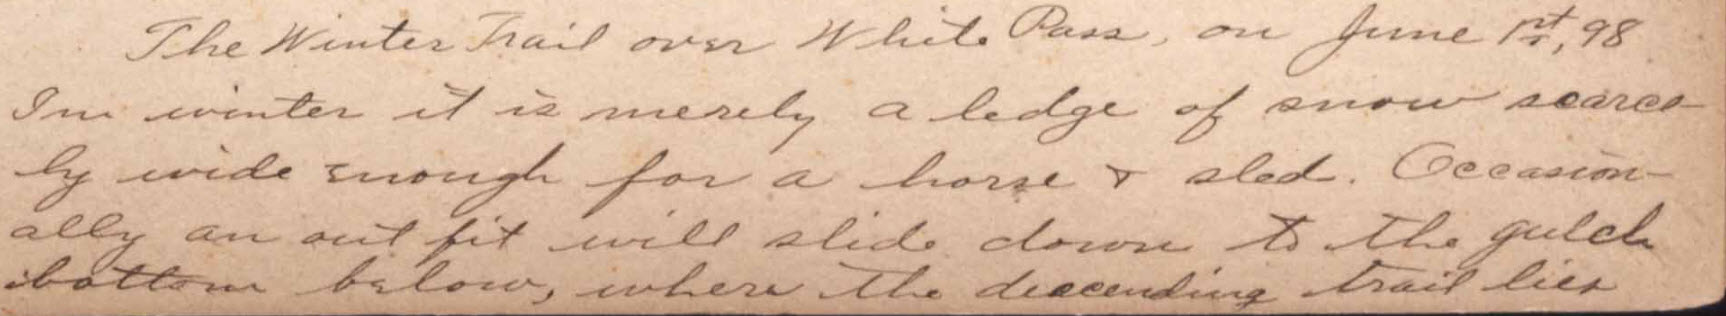 The Winter Trail over White Pass, on June 1st, 98
In winter it is merely a ledge of snow scarce-
ly wide enough for a horse & sled. Occasion-
ally an out fit will slide down to the gulch
bottom below, where the descending trail lies